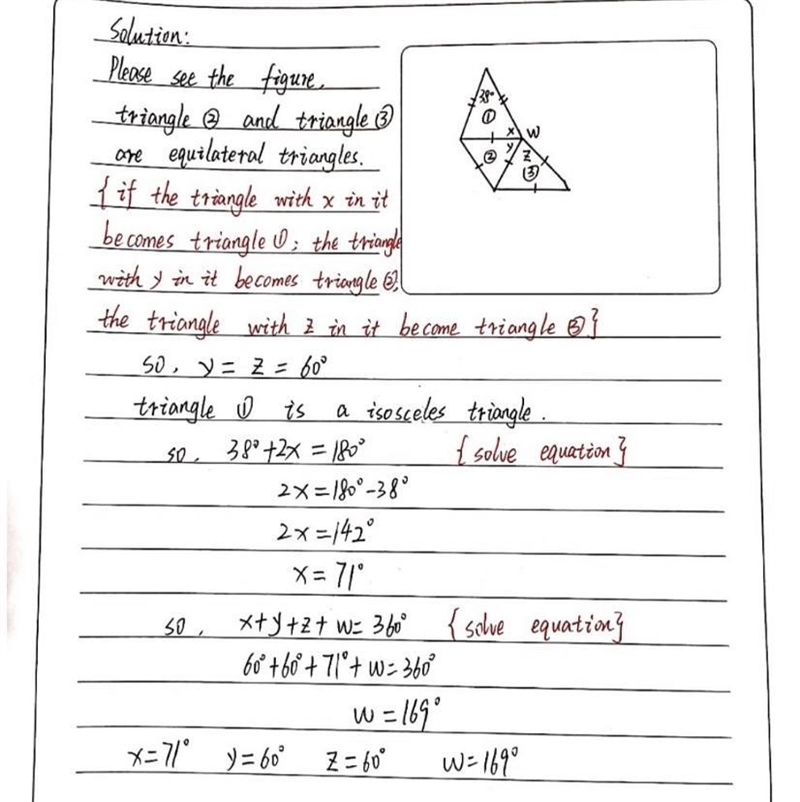 Solution:
Please see the figure,
triangle ② and triangle ③
are equilateral triangles.
{if the triangle with x in it
becomes triangle ①; the triangle
with y in it becomes triangle ②;
the triangle with z in it become triangle ③}
so, y = z = 60°
triangle ① is a isosceles triangle.
so, 38°+2x = 180° {solve equation}
2x = 180°-38°
2x = 142°
x = 71°
so, x+y+z+w = 360° {solve equation}
60°+60°+71°+w = 360°
w = 169°
x=71° y=60° z=60° w=169°
38°
①
x w
② y z
③